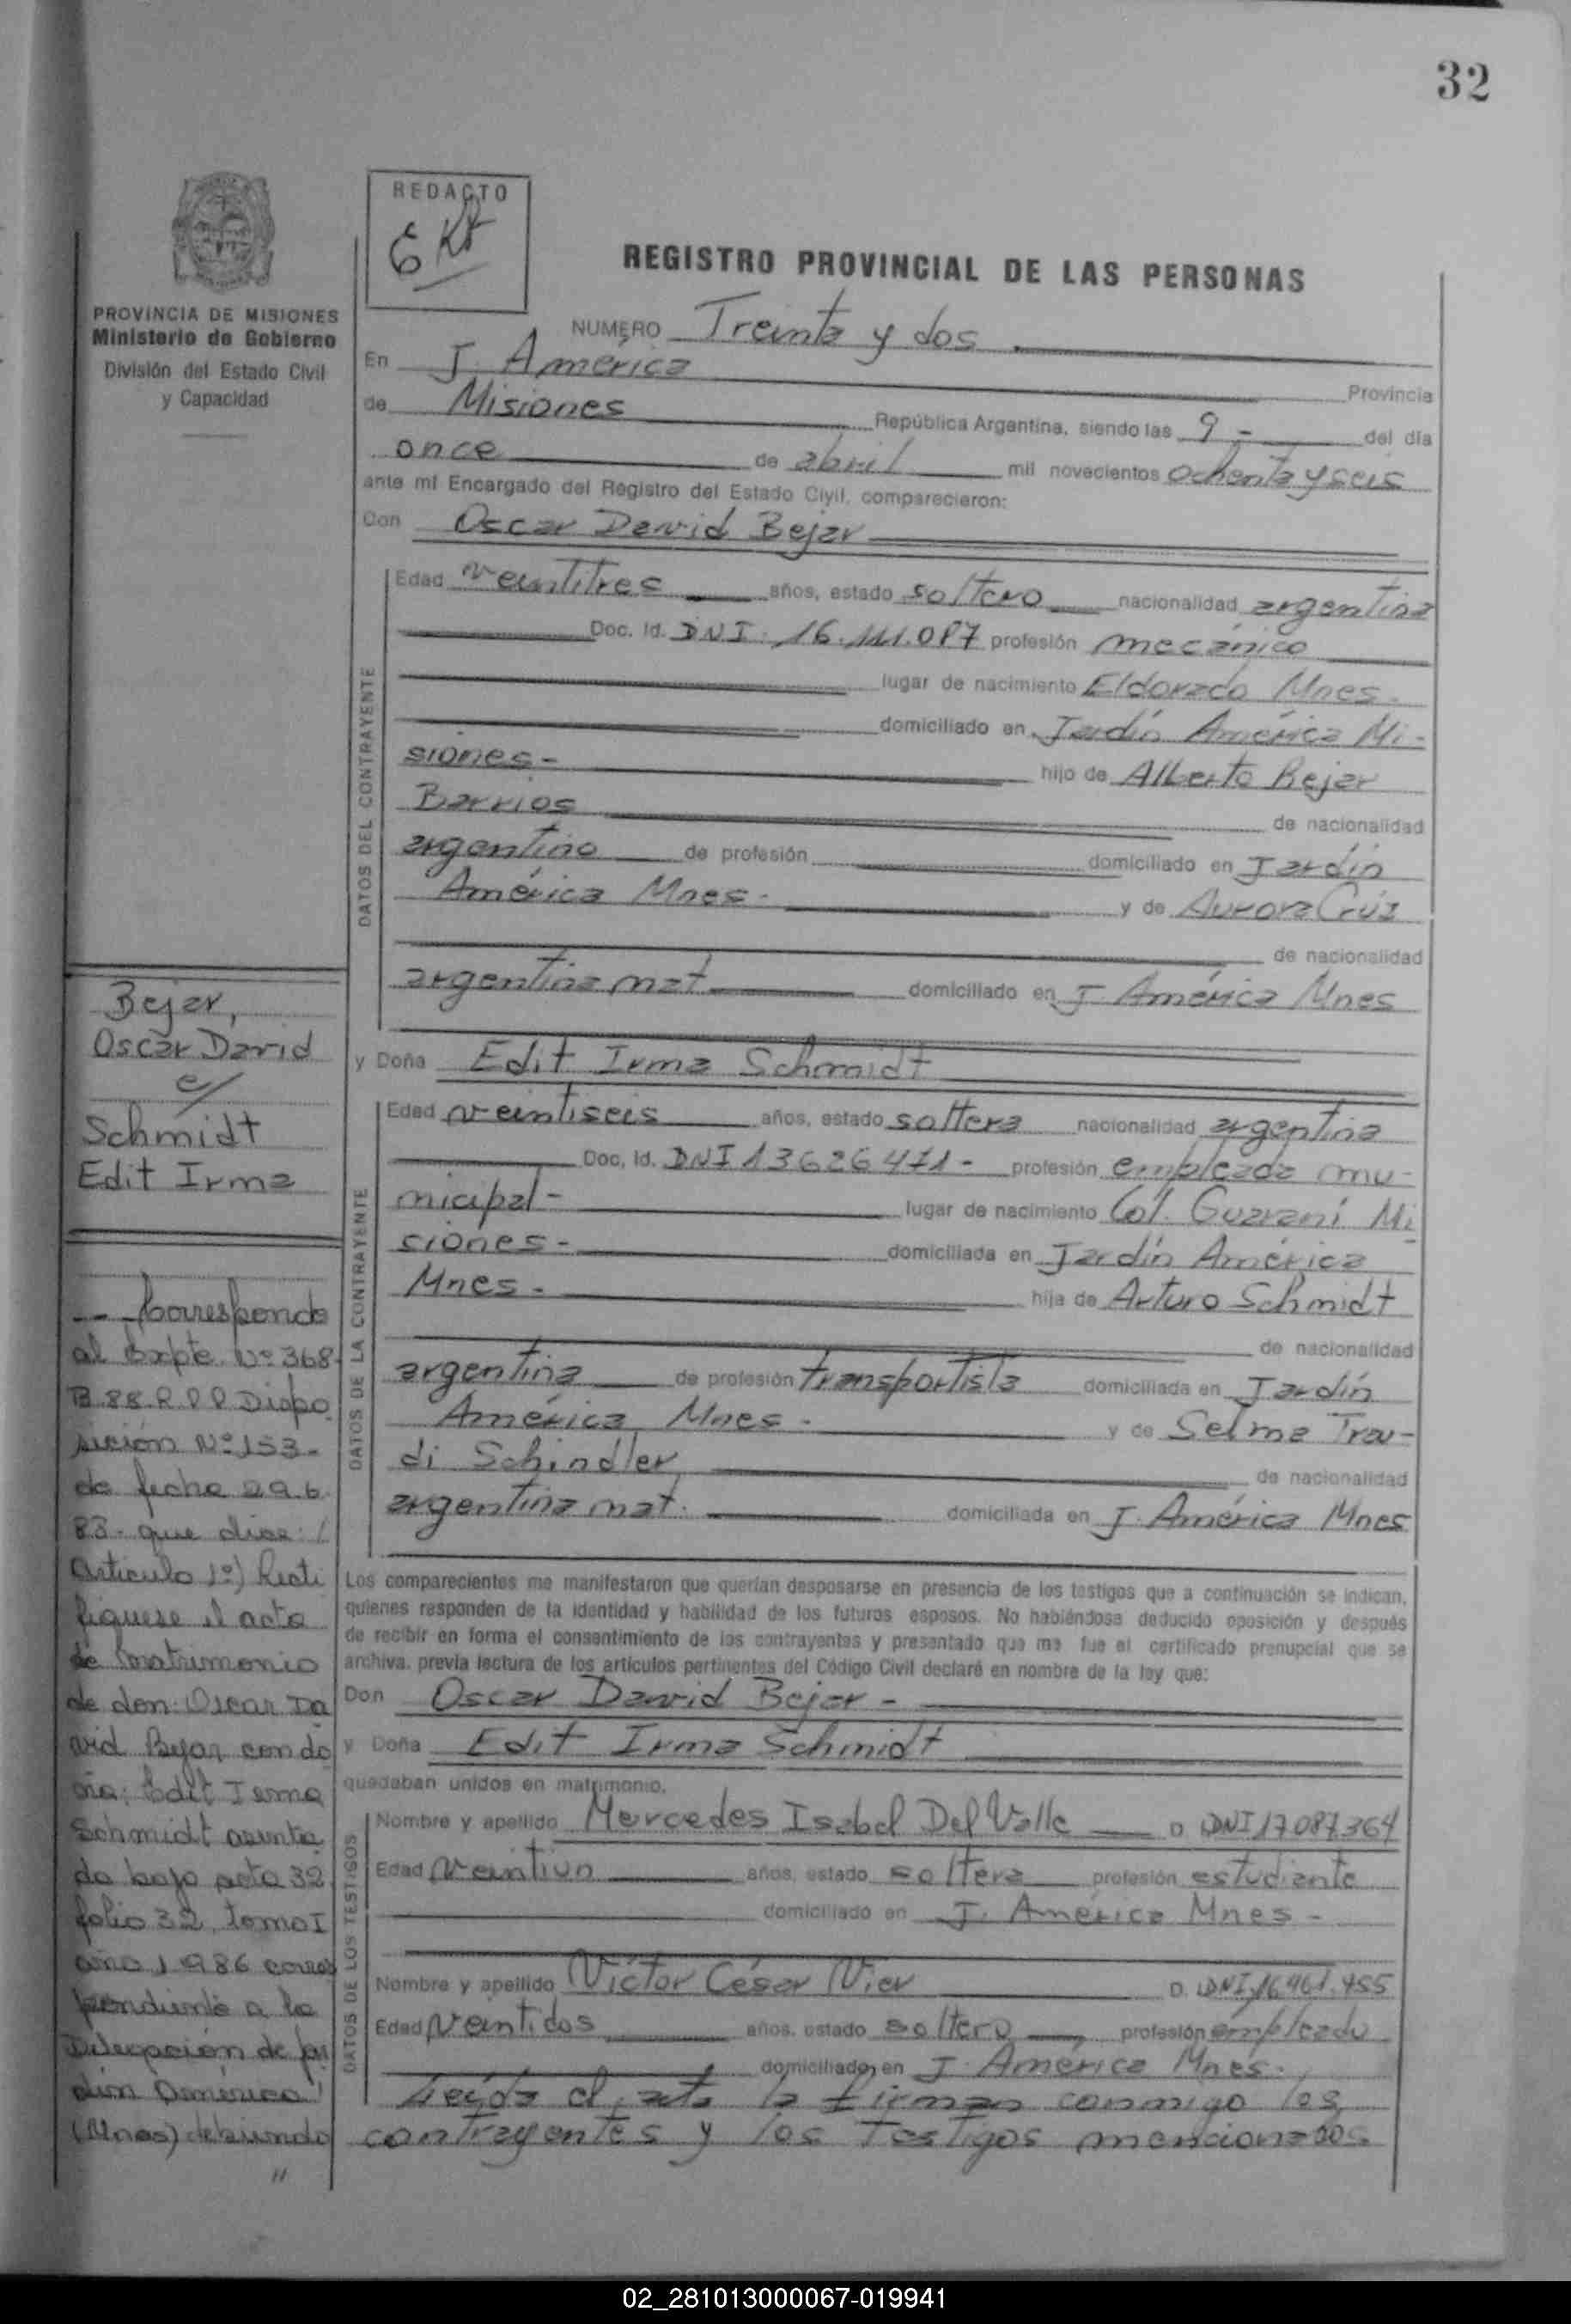 32
REDACTO
REGISTRO PROVINCIAL DE LAS PERSONAS
PROVINCIA DE MISIONES
Ministerio de Gobierno
División del Estado Civil
y Capacidad
NUMERO Treinta y dos
En J. América Provincia
de Misiones República Argentina, siendo las 9 - del día
once de abril mil novecientos ochenta y seis
ante mí Encargado del Registro del Estado Civil, comparecieron:
Don Oscar David Bejar
Edad veintitres años, estado soltero nacionalidad argentina
Doc. Id. DNI. 16.111.087 profesión mecánico
lugar de nacimiento Eldorado Mnes.
domiciliado en Jardín América Mi-
siones- hijo de Alberto Bejar
Barrios de nacionalidad
argentino de profesión domiciliado en Jardín
América Mnes- y de Aurora Cruz
de nacionalidad
argentina mat domiciliado en J. América Mnes
y Doña Edit Irma Schmidt
Edad veintiseis años, estado soltera nacionalidad argentina
Doc. Id. DNI 13626471- profesión empleada mu-
nicipal- lugar de nacimiento Col. Guaraní Mi
siones- domiciliada en Jardín América
Mnes- hija de Arturo Schmidt
de nacionalidad
argentina de profesión transportista domiciliada en Jardín
América Mnes. y de Selma Trau-
di Schindler de nacionalidad
argentina mat. domiciliada en J. América Mnes
DATOS DEL CONTRAYENTE
DATOS DE LA CONTRAYENTE
Los comparecientes me manifestaron que querían desposarse en presencia de los testigos que a continuación se indican,
quienes responden de la identidad y habilidad de los futuros esposos. No habiéndose deducido oposición y después
de recibir en forma el consentimiento de los contrayentes y presentado que me fue el certificado prenupcial que se
archiva, previa lectura de los artículos pertinentes del Código Civil declaré en nombre de la ley que:
Don Oscar David Bejar -
y Doña Edit Irma Schmidt
quedaban unidos en matrimonio.
DATOS DE LOS TESTIGOS
Nombre y apellido Mercedes Isabel Del Valle D. DNI 17.087.364
Edad veintiun años, estado soltera profesión estudiante
domiciliado en J. América Mnes -
Nombre y apellido Víctor César Vier D. DNI 16.461.455
Edad veintidos años, estado soltero profesión empleado
domiciliado en J. América Mnes.
Leída el acta la firman conmigo los
contrayentes y los testigos mencionados
Bejar,
Oscar David
c/
Schmidt
Edit Irma
-- Corresponde
al Expte. Nº 368-
B.88.R.P.P Dispo
sición Nº 153-
de fecha 29.6.
83- que dice: /
Artículo 1º) Recti
fíquese el acta
de Matrimonio
de don: Oscar Da
vid Bejar con do
ña: Edit Irma
Schmidt asenta
do bajo acta 32
folio 32, tomo I
año 1986 corres
pondiente a la
Delegación de Jar
dín América
(Mnes) debiendo
"
02_281013000067-019941